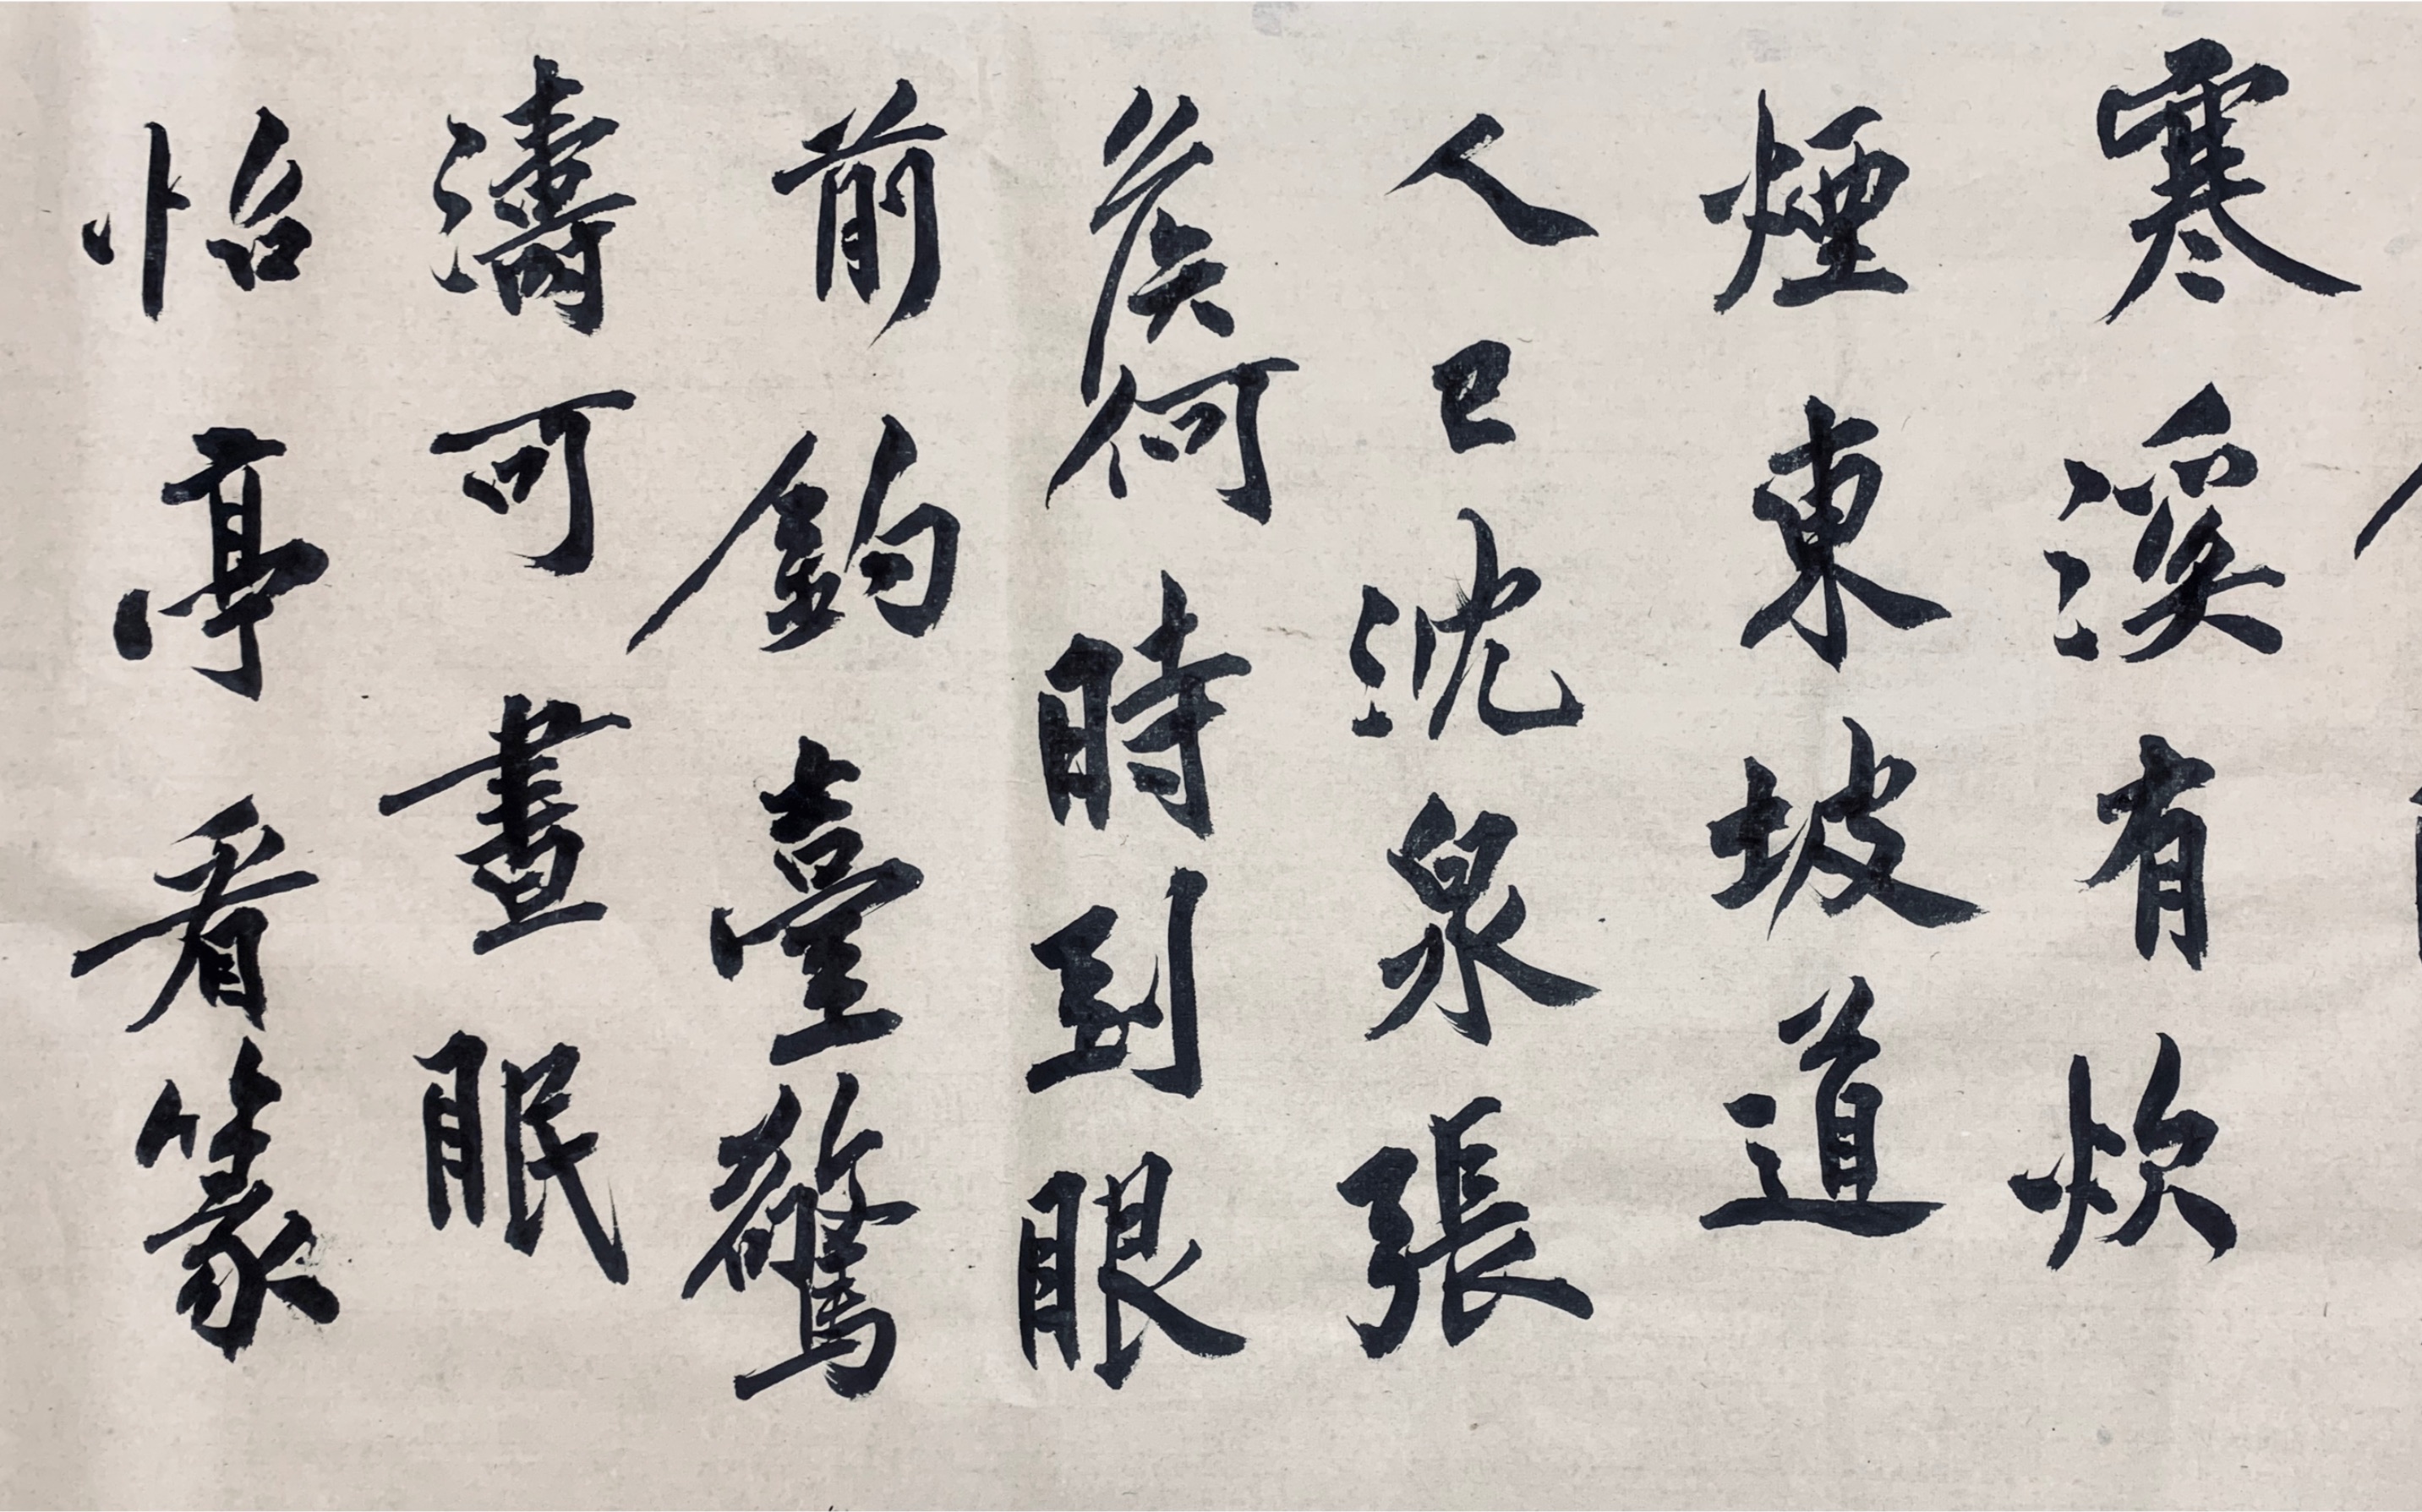 寒溪有炊
煙東坡道
人已沈泉張
矦何時到眼
前釣臺驚
濤可晝眠
怡亭看篆